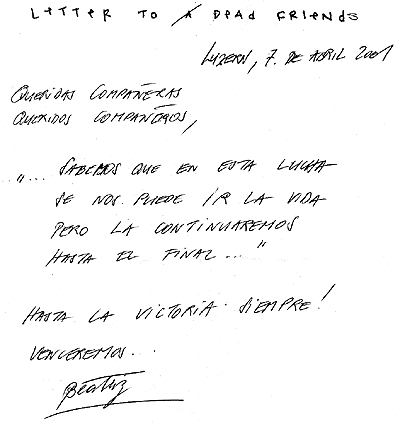 LETTER TO A DEAD FRIENDS
LUZERN, 7. DE ABRIL 2001
QUERIDAS COMPAÑERAS
QUERIDOS COMPAÑEROS,
"... SABEMOS QUE EN ESTA LUCHA
SE NOS PUEDE IR LA VIDA
PERO LA CONTINUAREMOS
HASTA EL FINAL..."
HASTA LA VICTORIA SIEMPRE!
VENCEREMOS...
Béatriz